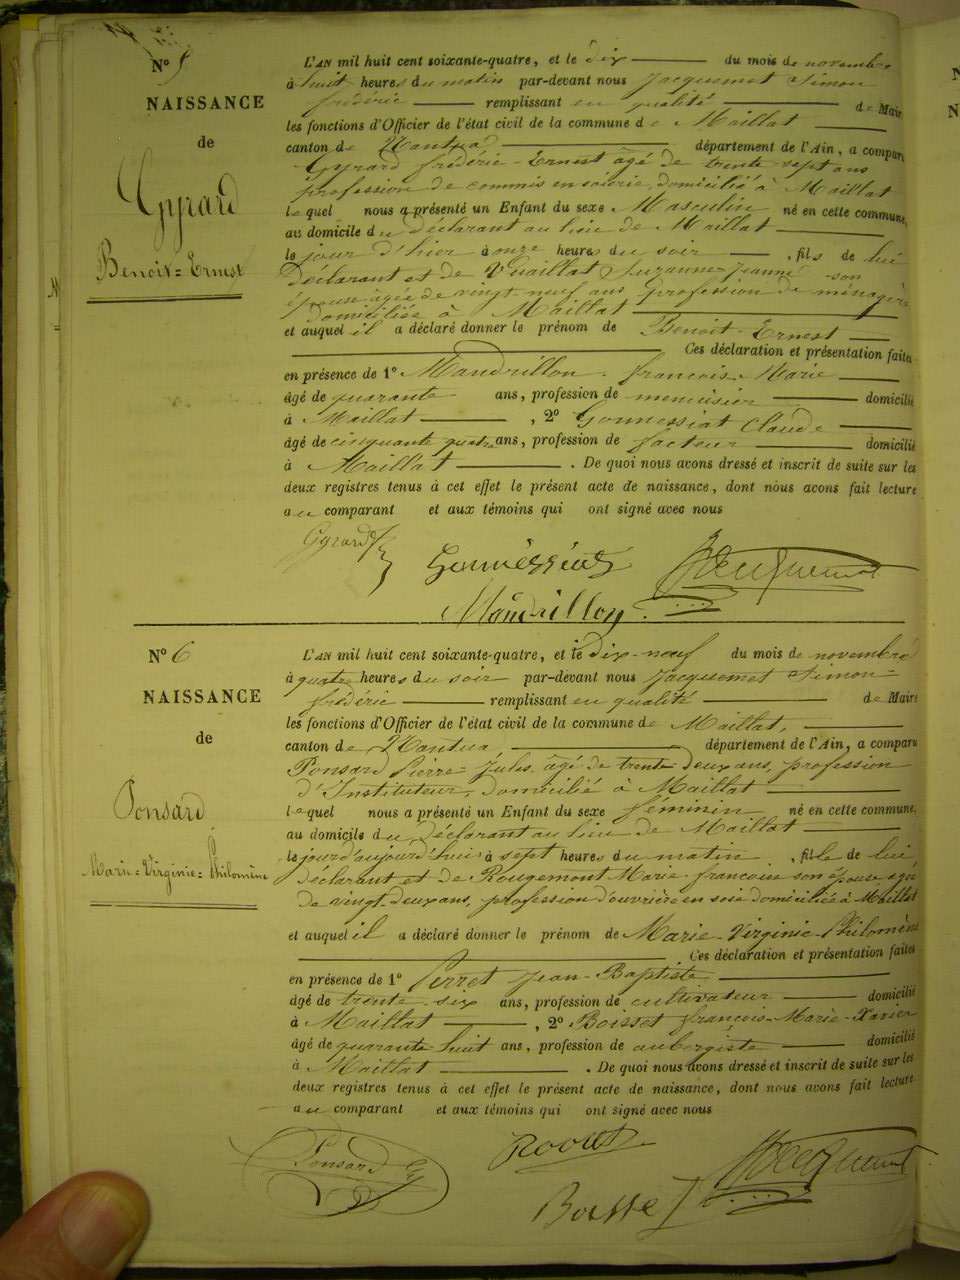 N° 5
NAISSANCE
de
Gyrard
Benoit=Ernest
L'AN mil huit cent soixante-quatre, et le dix du mois de novembre
à huit heures du matin par-devant nous Jacquemet Simon
frédéric remplissant en qualité de Maire
les fonctions d'Officier de l'état civil de la commune de Maillat
canton de Nantua département de l'Ain, a comparu
Gyrard frédéric-Ernest âgé de trente sept ans
profession de commis en soierie, domicilié à Maillat
lequel nous a présenté un Enfant du sexe Masculin né en cette commune,
au domicile du déclarant au lieu de Maillat
le jour d'hier à onze heures du soir, fils de lui
déclarant et de Vuaillat Suzanne-Jeanne son
épouse agée de vingt-neuf ans profession de ménagère
domiciliée à Maillat
et auquel il a déclaré donner le prénom de Benoit-Ernest
Ces déclaration et présentation faites
en présence de 1° Mandrillon françois-Marie
âgé de quarante ans, profession de menuisier domicilié
à Maillat, 2° Gonnessiat Claude
âgé de cinquante quatre ans, profession de facteur domicilié
à Maillat. De quoi nous avons dressé et inscrit de suite sur les
deux registres tenus à cet effet le présent acte de naissance, dont nous avons fait lecture
au comparant et aux témoins qui ont signé avec nous
Gyrard Gonnessiat Jacquemet
Mandrillon
N° 6
NAISSANCE
de
Ponsard
Marie=Virginie=Philomène
L'AN mil huit cent soixante-quatre, et le dix-neuf du mois de novembre
à quatre heures du soir par-devant nous Jacquemet Simon-
frédéric remplissant en qualité de Maire
les fonctions d'Officier de l'état civil de la commune de Maillat,
canton de Nantua, département de l'Ain, a comparu
Ponsard Pierre-Jules âgé de trente deux ans, profession
d'Instituteur, domicilié à Maillat
lequel nous a présenté un Enfant du sexe féminin né en cette commune,
au domicile du déclarant au lieu de Maillat
le jour d'aujourd'hui à sept heures du matin, fille de lui
déclarant et de Rougemont Marie-francoise son épouse agée
de vingt deux ans, profession d'ouvrière en soie domiciliée à Maillat
et auquel il a déclaré donner le prénom de Marie-Virginie-Philomène
Ces déclaration et présentation faites
en présence de 1° Perret Jean-Baptiste
âgé de trente-six ans, profession de cultivateur domicilié
à Maillat, 2° Boisset françois-Marie-Xavier
âgé de quarante huit ans, profession de aubergiste domicilié
à Maillat. De quoi nous avons dressé et inscrit de suite sur les
deux registres tenus à cet effet le présent acte de naissance, dont nous avons fait lecture
au comparant et aux témoins qui ont signé avec nous
Ponsard Jacquemet